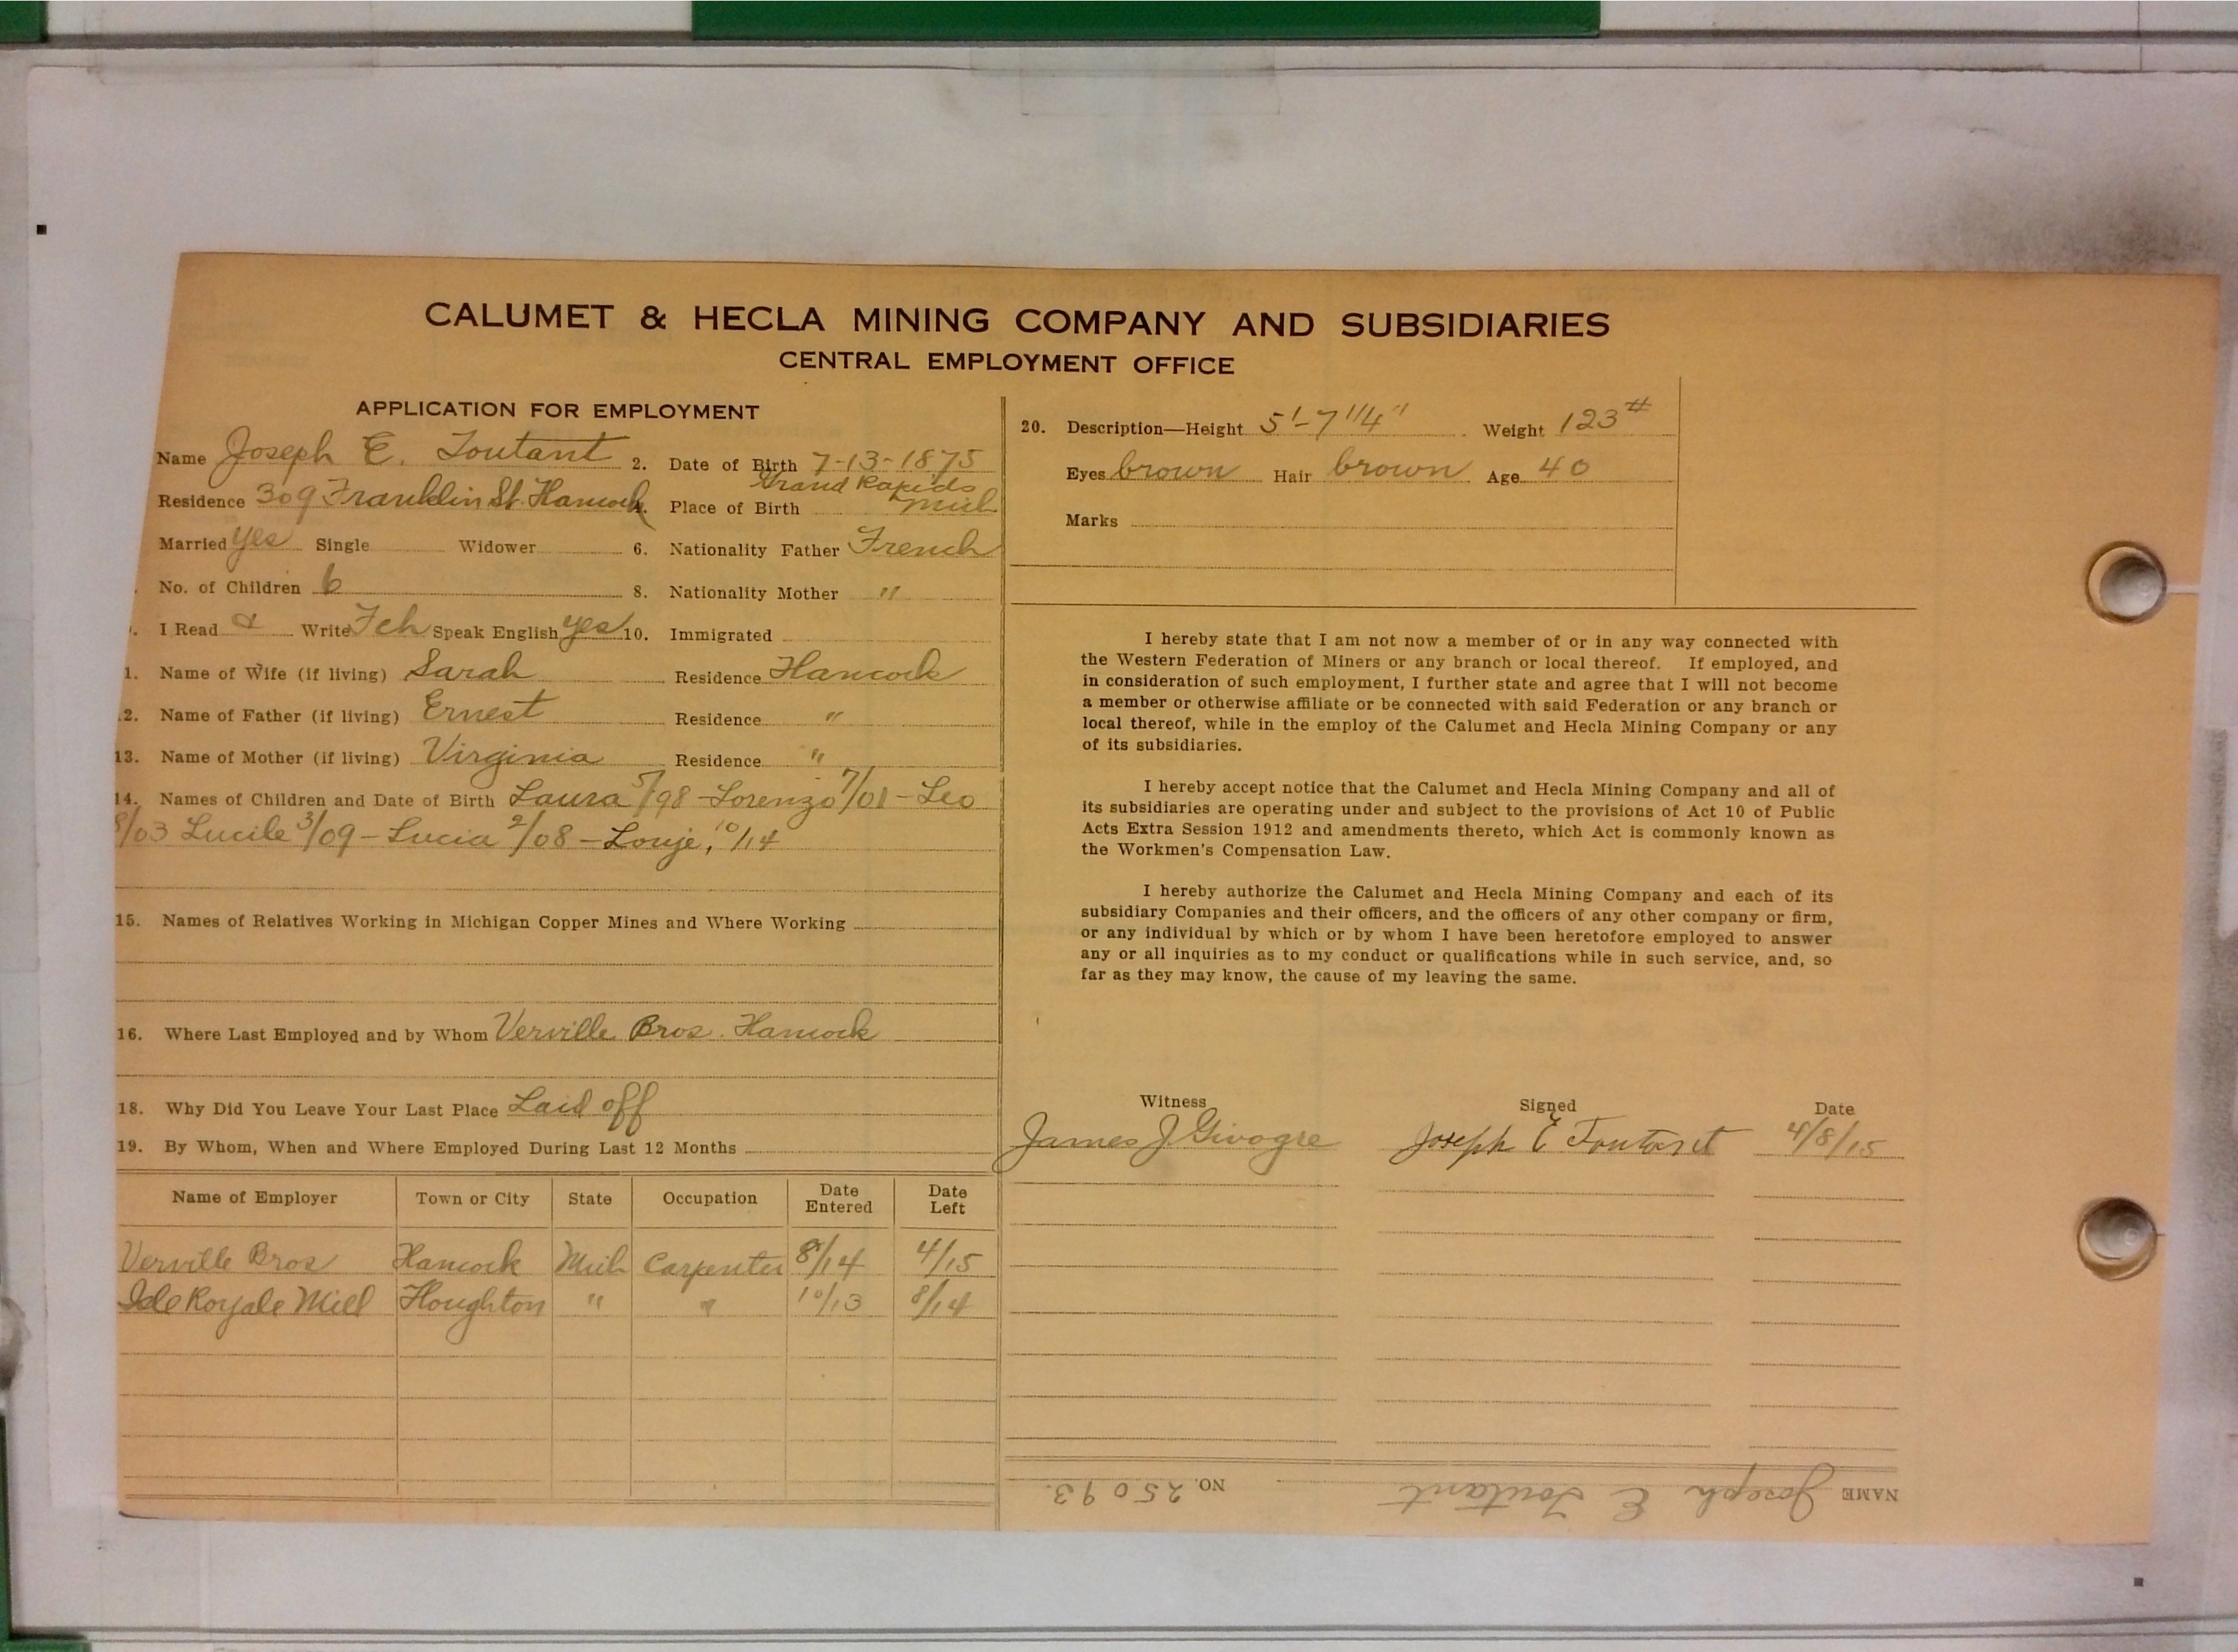 CALUMET & HECLA MINING COMPANY AND SUBSIDIARIES
CENTRAL EMPLOYMENT OFFICE
APPLICATION FOR EMPLOYMENT
Name Joseph E. Toutant 2. Date of Birth 7-13-1875
Residence 309 Franklin St. Hancock 4. Place of Birth Grand Rapids Mich
Married yes Single Widower 6. Nationality Father French
No. of Children 6 8. Nationality Mother "
I Read & Write Fch Speak English yes 10. Immigrated
1. Name of Wife (if living) Sarah Residence Hancock
2. Name of Father (if living) Ernest Residence "
13. Name of Mother (if living) Virginia Residence "
14. Names of Children and Date of Birth Laura 5/98 - Lorenzo 7/01 - Leo
8/03 Lucile 3/09 - Lucia 2/08 - Louje, 10/14
15. Names of Relatives Working in Michigan Copper Mines and Where Working
16. Where Last Employed and by Whom Verville Bros. Hancock
18. Why Did You Leave Your Last Place Laid off
19. By Whom, When and Where Employed During Last 12 Months
Name of Employer Town or City State Occupation Date Entered Date Left
Verville Bros Hancock Mich Carpenter 8/14 4/15
Isle Royale Mill Houghton " " 10/13 8/14
20. Description—Height 5'-7 1/4" Weight 123#
Eyes brown Hair brown Age 40
Marks
I hereby state that I am not now a member of or in any way connected with
the Western Federation of Miners or any branch or local thereof. If employed, and
in consideration of such employment, I further state and agree that I will not become
a member or otherwise affiliate or be connected with said Federation or any branch or
local thereof, while in the employ of the Calumet and Hecla Mining Company or any
of its subsidiaries.
I hereby accept notice that the Calumet and Hecla Mining Company and all of
its subsidiaries are operating under and subject to the provisions of Act 10 of Public
Acts Extra Session 1912 and amendments thereto, which Act is commonly known as
the Workmen's Compensation Law.
I hereby authorize the Calumet and Hecla Mining Company and each of its
subsidiary Companies and their officers, and the officers of any other company or firm,
or any individual by which or by whom I have been heretofore employed to answer
any or all inquiries as to my conduct or qualifications while in such service, and, so
far as they may know, the cause of my leaving the same.
Witness Signed Date
James J Givogre Joseph E Toutant 4/8/15
NAME Joseph E Toutant NO. 25093